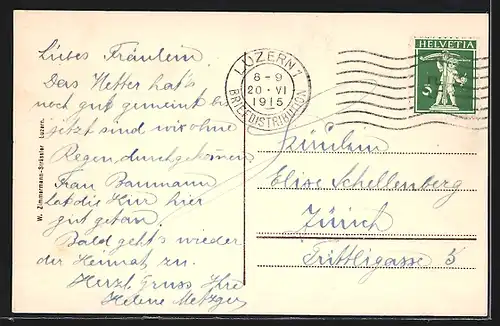 Liebes Fräulein.
Das Wetter hat's
noch gut gemeint bis
jetzt sind wir ohne
Regen, durchgekommen
Frau Baumann
hat die Kur hier
gut getan.
Bald geht's wieder
der Heimat zu.
Herzl. Gruss Ihre
Helene Metzger
W. Zimmermann-Strässler Luzern.
LUZERN 1
8-9
20·VI
1915
BRIEFDISTRIBUTION
HELVETIA
5
Fräulein
Elise Schellenberg
Zürich
Trittligasse 5